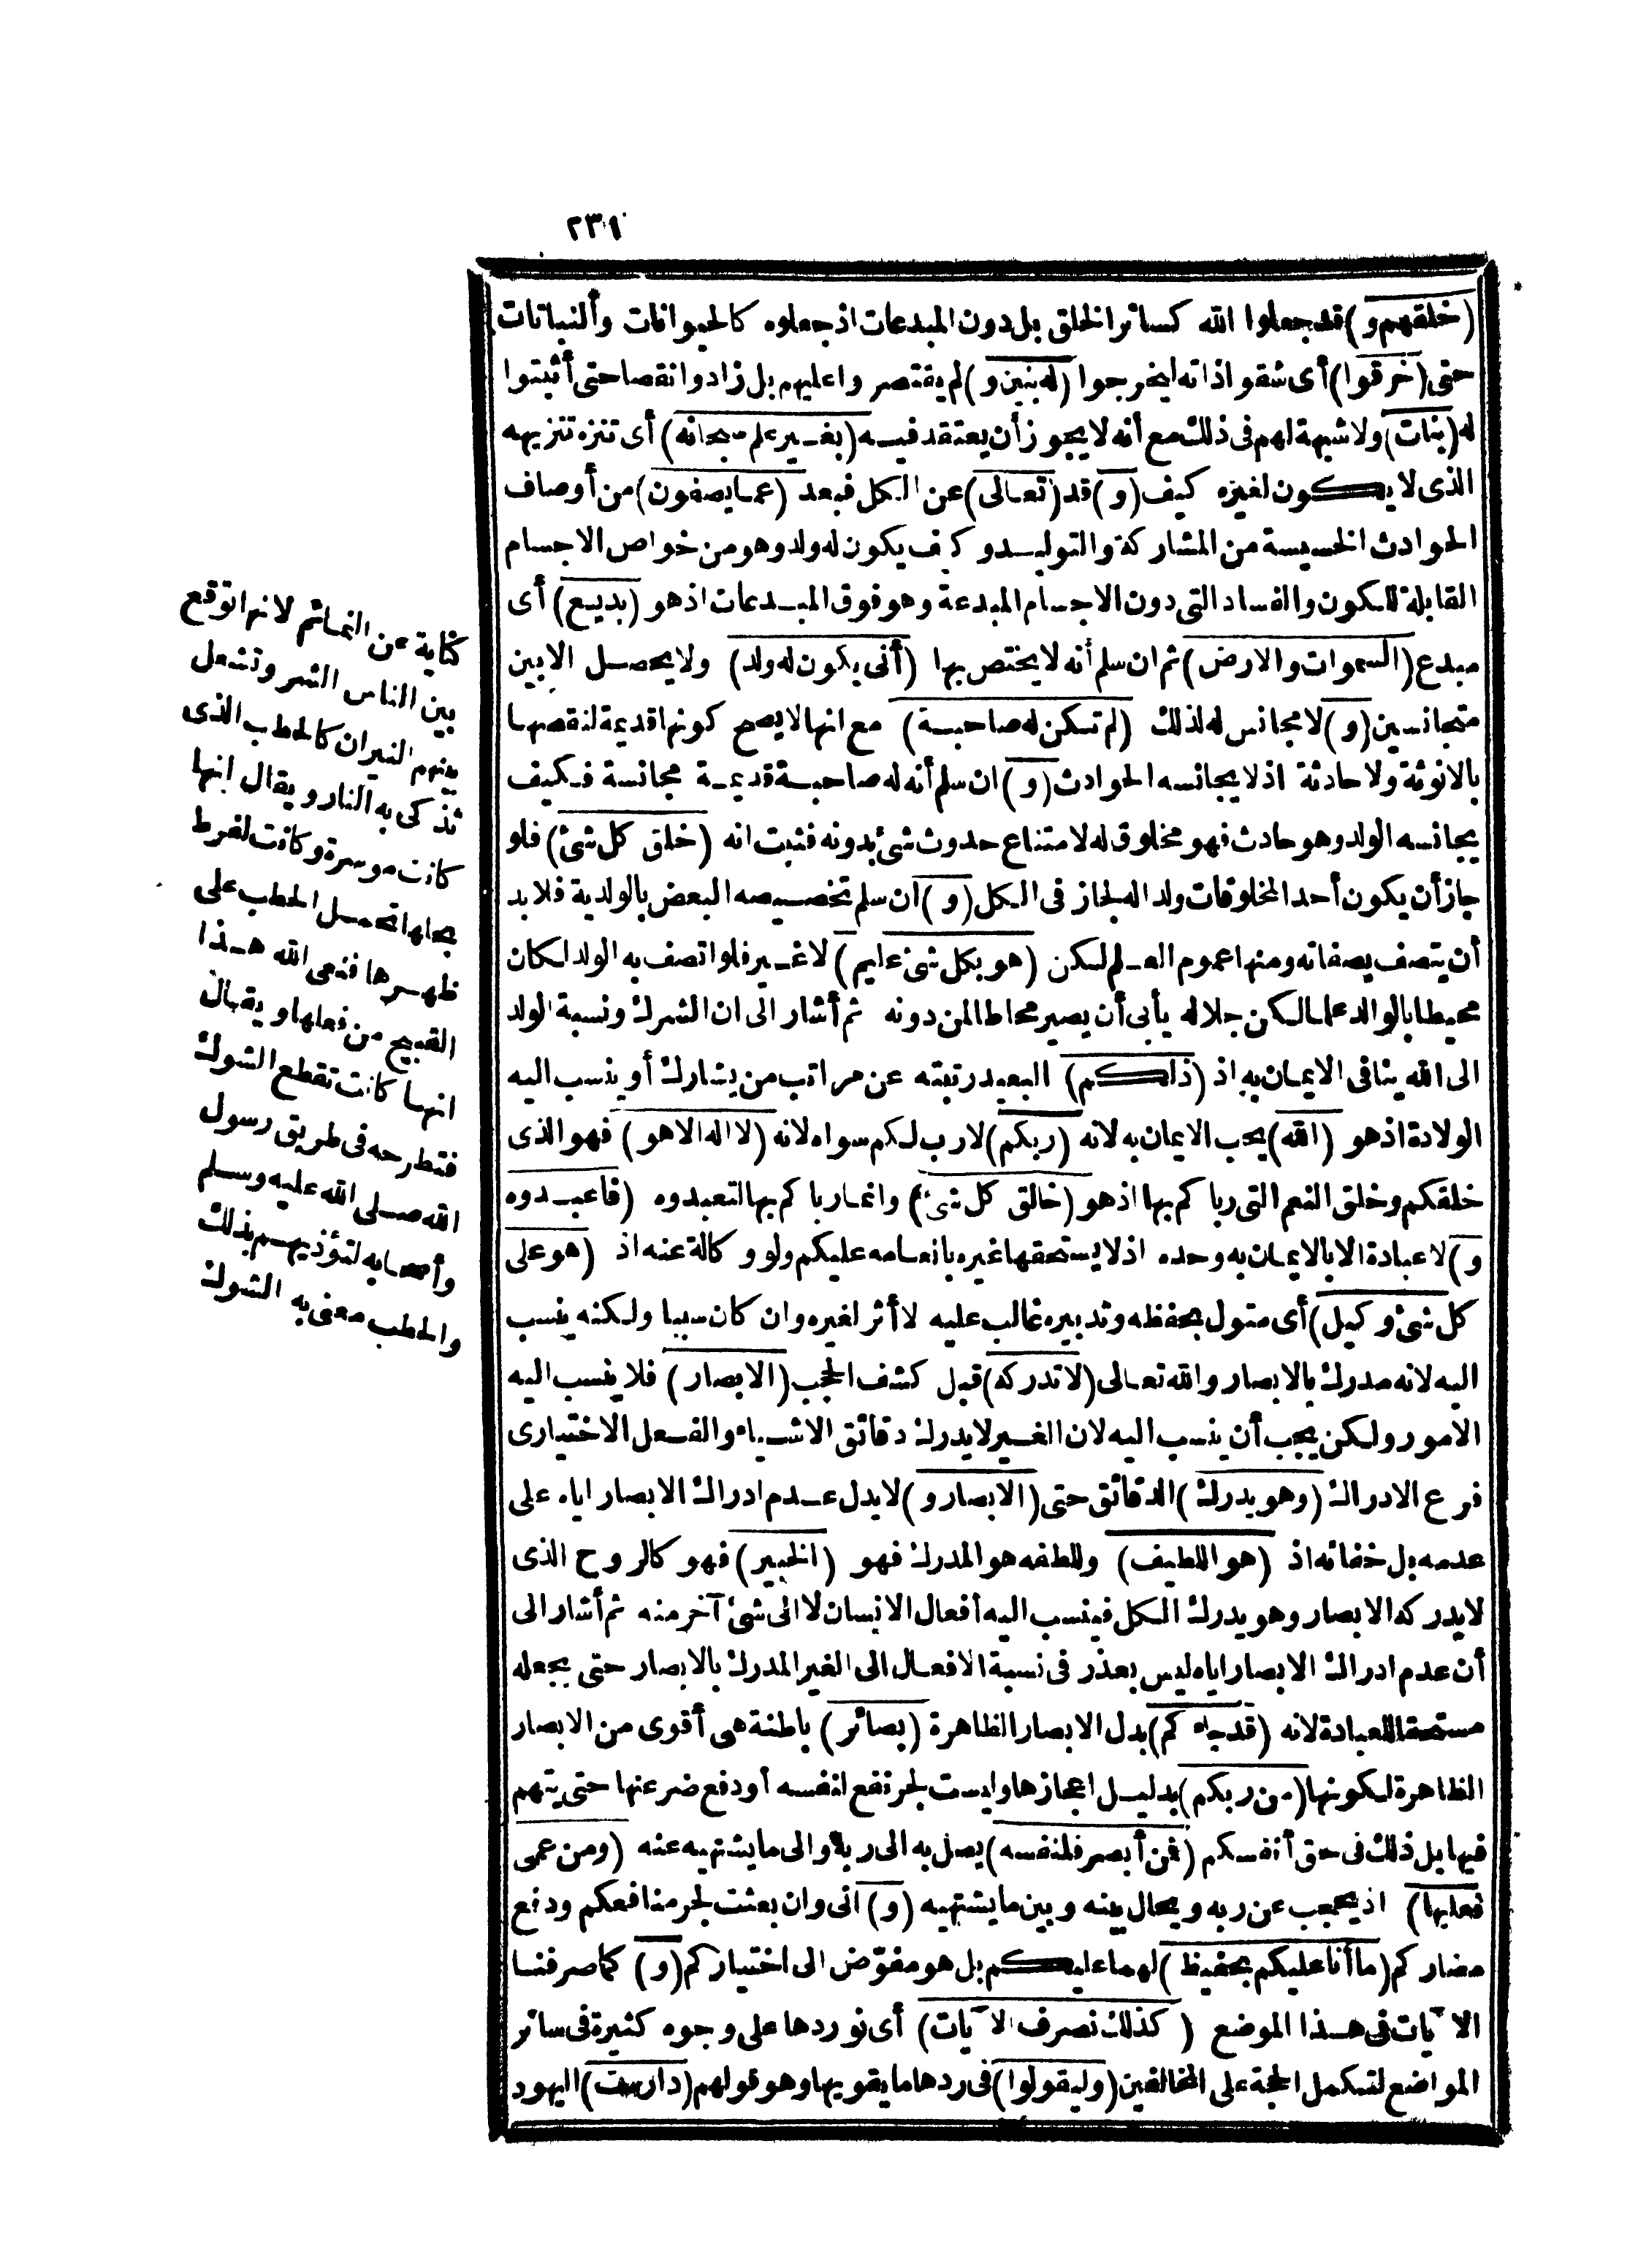 ٢٣٩
(خلقهم و) قد جعلوا الله كسائر الخلق بل دون المبدعات اذ جعلوه كالحيوانات والنباتات
حتى (خرقوا) أى شقوا ذاته ليخرجوا (له بنين و) لم يقتصروا عليهم بل زادوا نقصا حتى أثبتوا
له (بنات) ولا شبهة لهم فى ذلك مع أنه لا يجوز أن يعتقد فيه (بغير علم سبحانه) أى تنزه تنزيهه
الذى لا يكون لغيره كيف (و) قد (تعالى) عن الكل فبعد (عما يصفون) من أوصاف
الحوادث الخسيسة من المشاركة والتوليد وكيف يكون له ولد وهو من خواص الاجسام
القابلة للكون والفساد التى دون الاجسام المبدعة وهو فوق المبدعات اذ هو (بديع) أى
مبدع (السموات والارض) ثم ان سلم أنه لا يختص بها (أنى يكون له ولد) ولا يحصل الا بين
متجانسين (و) لا مجانس له لذلك (لم تكن له صاحبة) مع انها لا يصح كونها قديمة لنقصها
بالانوثة ولا حادثة اذ لا يجانسه الحوادث (و) ان سلم أنه له صاحبة قديمة مجانسة فكيف
يجانسه الولد وهو حادث فهو مخلوق له لامتناع حدوث شئ بدونه فثبت انه (خلق كل شئ) فلو
جاز أن يكون أحد المخلوقات ولدا له لجاز فى الكل (و) ان سلم تخصيصه البعض بالولدية فلا بد
أن يتصف بصفاته ومنها عموم العلم لكن (هو بكل شئ عليم) لا غير فلو اتصف به الولد لكان
محيطا بالوالد علما لكن جلاله يأبى أن يصير محاطا لمن دونه ثم أشار الى ان الشرك ونسبة الولد
الى الله ينافى الايمان به اذ (ذلكم) البعيد رتبته عن مراتب من يشارك أو ينسب اليه
الولادة اذ هو (الله) يجب الايمان به لانه (ربكم) لا رب لكم سواه لانه (لا اله الا هو) فهو الذى
خلقكم وخلق النعم التى رباكم بها اذ هو (خالق كل شئ) وانما رباكم بها لتعبدوه (فاعبدوه
و) لا عبادة الا بالايمان به وحده اذ لا يستحقها غيره بانعامه عليكم ولو وكالة عنه اذ (هو على
كل شئ وكيل) أى متول بحفظه وتدبيره غالب عليه لا أثر لغيره وان كان سببا ولكنه ينسب
اليه لانه مدرك بالابصار والله تعالى (لا تدركه) قبل كشف الحجب (الابصار) فلا ينسب اليه
الامور ولكن يجب أن ينسب اليه لان الغير لا يدرك دقائق الاشياء والفعل الاختيارى
فرع الادراك (وهو يدرك) الدقائق حتى (الابصار و) لا يدل عدم ادراك الابصار اياه على
عدمه بل خفائه اذ (هو اللطيف) وللطفه هو المدرك فهو (الخبير) فهو كالروح الذى
لا يدركه الابصار وهو يدرك الكل فينسب اليه أفعال الانسان لا الى شئ آخر منه ثم أشار الى
أن عدم ادراك الابصار اياه ليس بعذر فى نسبة الافعال الى الغير المدرك بالابصار حتى يجعله
مستحقا للعبادة لانه (قد جاءكم) بدل الابصار الظاهرة (بصائر) باطنة هى أقوى من الابصار
الظاهرة لكونها (من ربكم) بدليل اعجازها وليست لجر نفع لنفسه أو دفع ضر عنها حتى يتهم
فيها بل ذلك فى حق أنفسكم (فمن أبصر فلنفسه) يصل به الى ربه والى ما يشتهيه عنه (ومن عمى
فعليها) اذ يحجب عن ربه ويحال بينه وبين ما يشتهيه (و) انى وان بعثت لجر منافعكم ودفع
مضاركم (ما أنا عليكم بحفيظ) لهما عليكم بل هو مفوّض الى اختياركم (و) كما صرفنا
الآيات فى هذا الموضع (كذلك نصرف الآيات) أى نوردها على وجوه كثيرة فى سائر
المواضع لتكمل الحجة على المخالفين (وليقولوا) فى ردها ما يقويها وهو قولهم (دارست) اليهود
كناية عن النمائم لانها توقع
بين الناس الشر وتشعل
بينهم النيران كالحطب الذى
تذكى به النار ويقال انها
كانت موسرة وكانت لفرط
بخلها تحمل الحطب على
ظهرها فنعى الله هذا
القبيح من فعلها ويقال
انها كانت تقطع الشوك
فتطرحه فى طريق رسول
الله صلى الله عليه وسلم
وأصحابه لتؤذيهم بذلك
والحطب معنى به الشوك